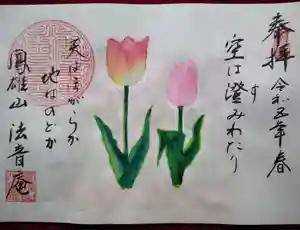 奉拝
令和五年春
空は
す
澄みわたり
天はほがらか
地はのどか
鳳雄山 法音庵